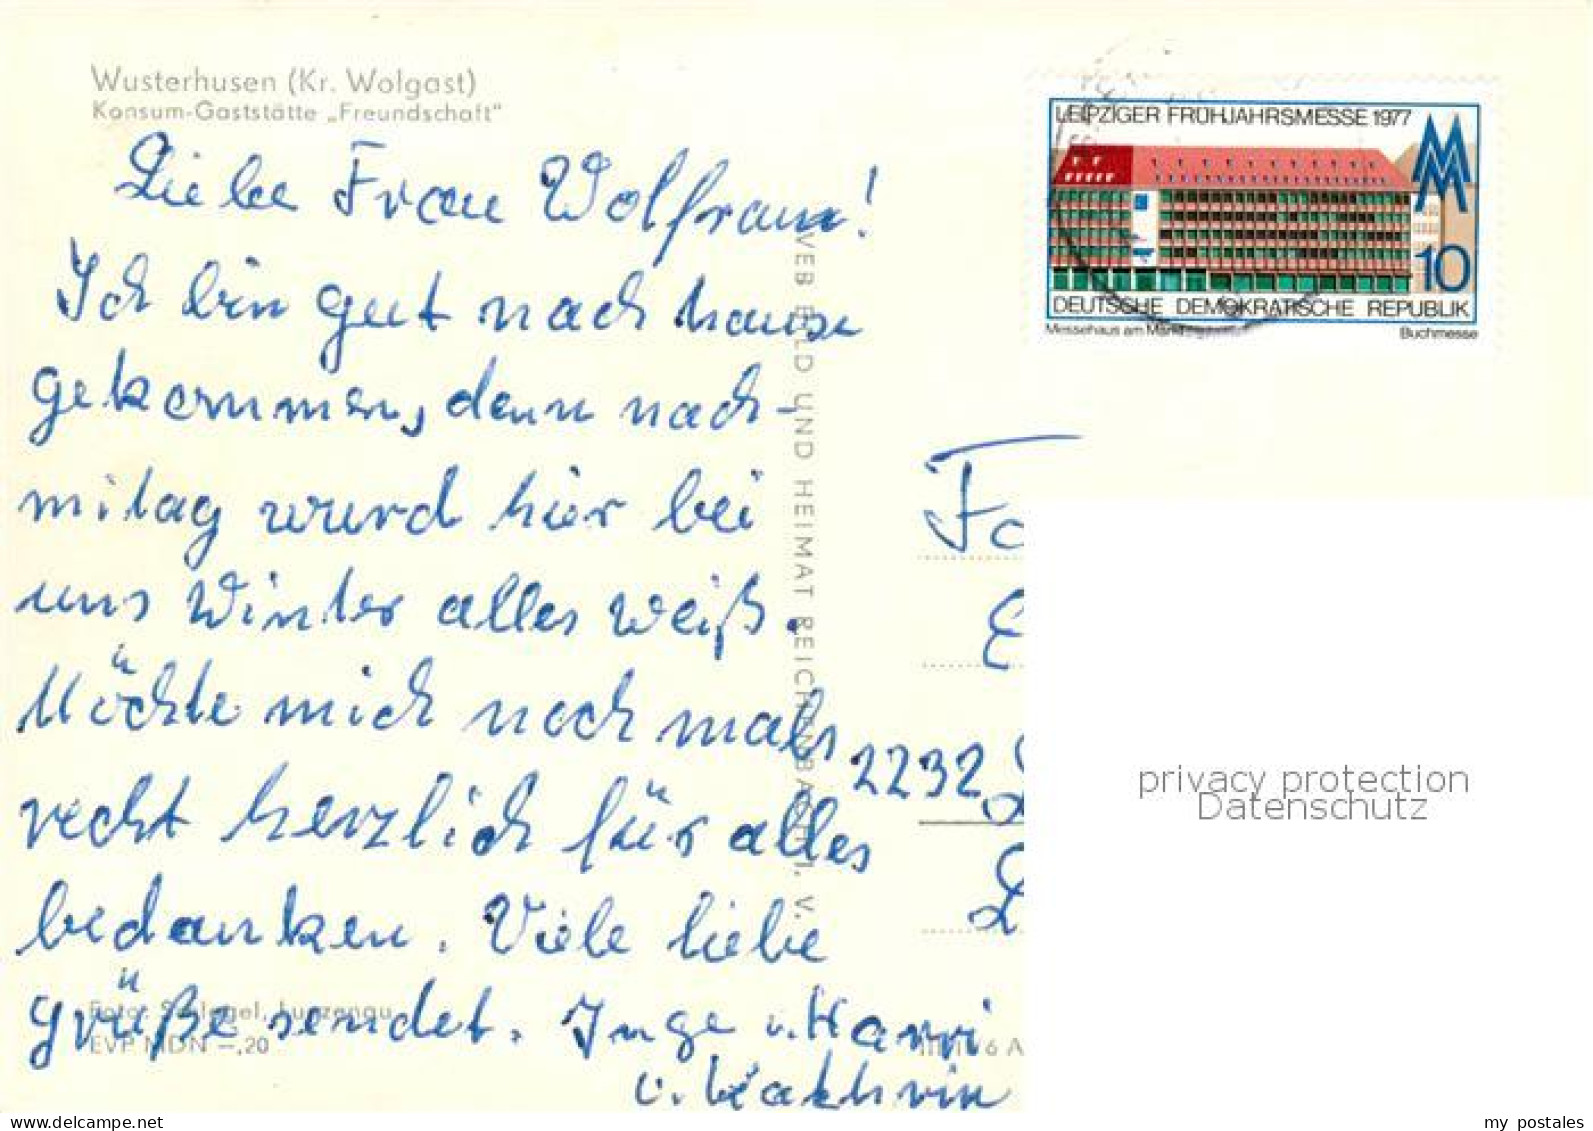 Wusterhusen (Kr. Wolgast)
Konsum-Gaststätte „Freundschaft"
Liebe Frau Wolfram!
Ich bin gut nach hause
gekommen, denn nach-
mitag wurd hier bei
uns Winter alles weiß.
Möchte mich noch mals
recht herzlich für alles
bedanken. Viele liebe
grüße sendet. Inge u. Harri
u. Kathrin
Foto: Schlegel, Lunzenau
EVP MDN –,20
VEB BILD UND HEIMAT REICHENBACH I. V.
LEIPZIGER FRÜHJAHRSMESSE 1977
MM
10
DEUTSCHE DEMOKRATISCHE REPUBLIK
Messehaus am Markt
Buchmesse
2232
6 A
privacy protection
Datenschutz
my postales